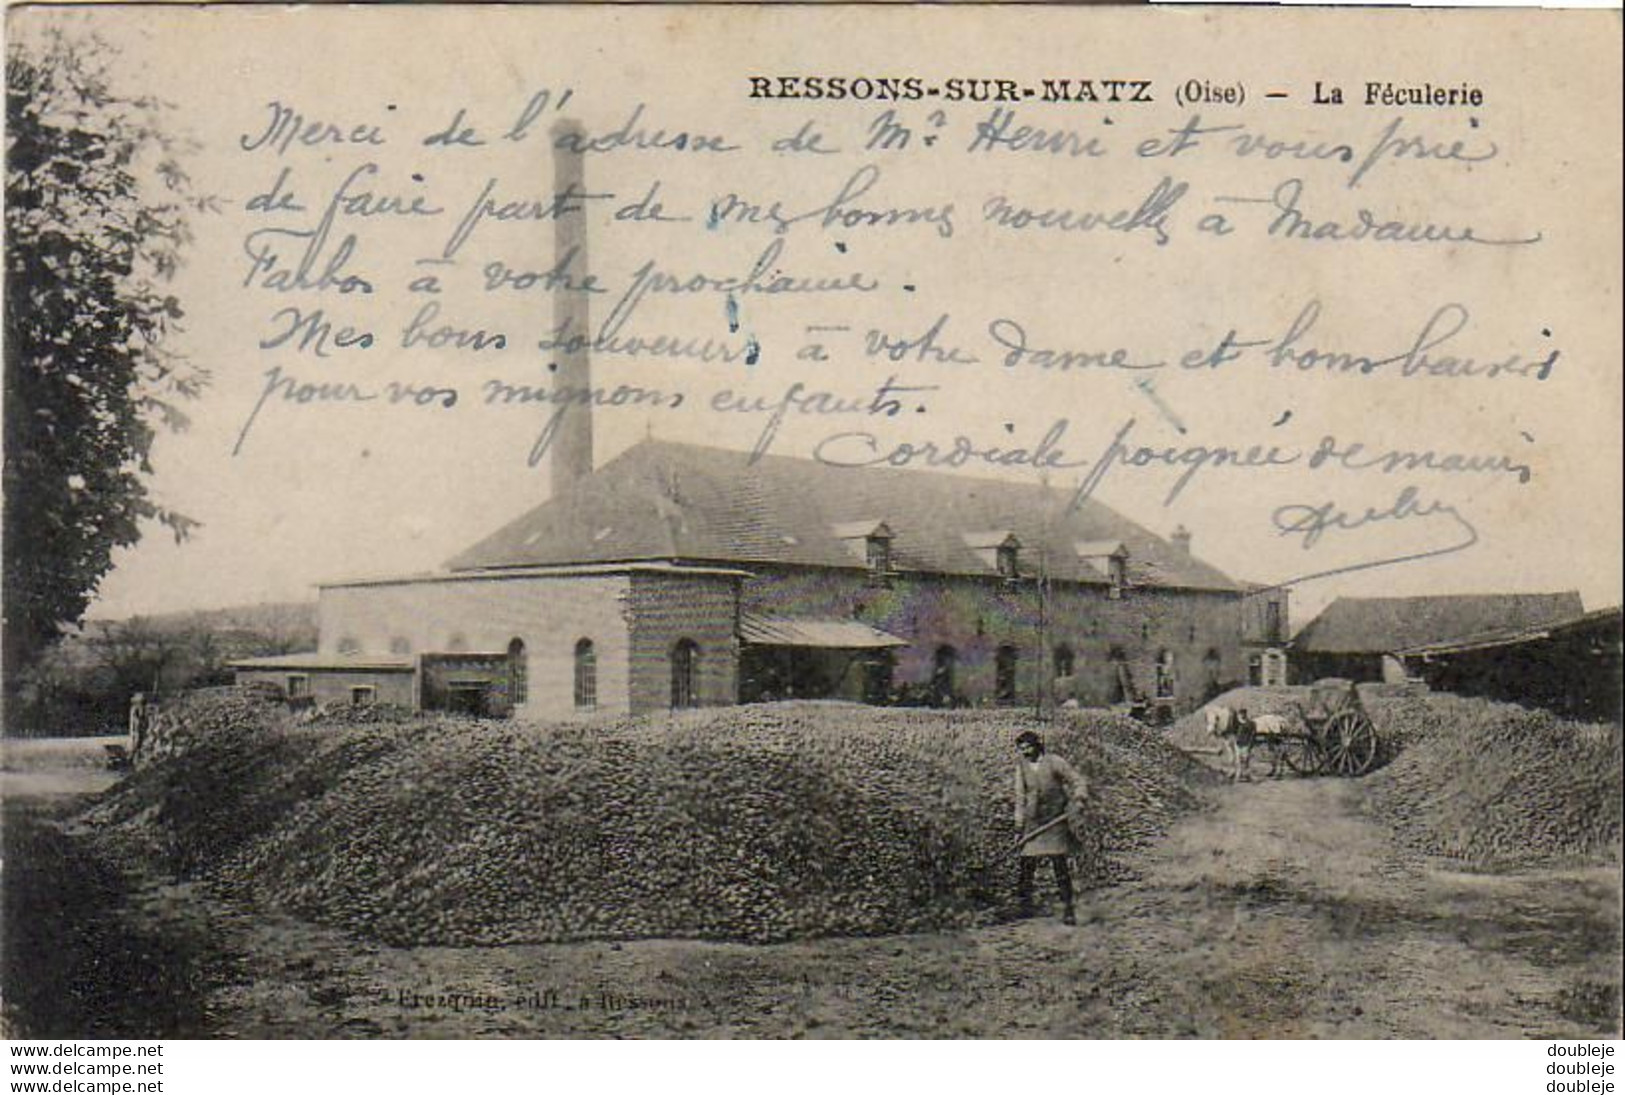 RESSONS-SUR-MATZ (Oise) — La Féculerie
Merci de l'adresse de Mr Henri et vous prie
de faire part de mes bonnes nouvelles à Madame
Farbos à votre prochaine.
Mes bons souvenirs à votre Dame et bons baisers
pour vos mignons enfants.
Cordiale poignée de mains
Frezquin, édit. à Ressons
www.delcampe.net
www.delcampe.net
www.delcampe.net
doubleje
doubleje
doubleje